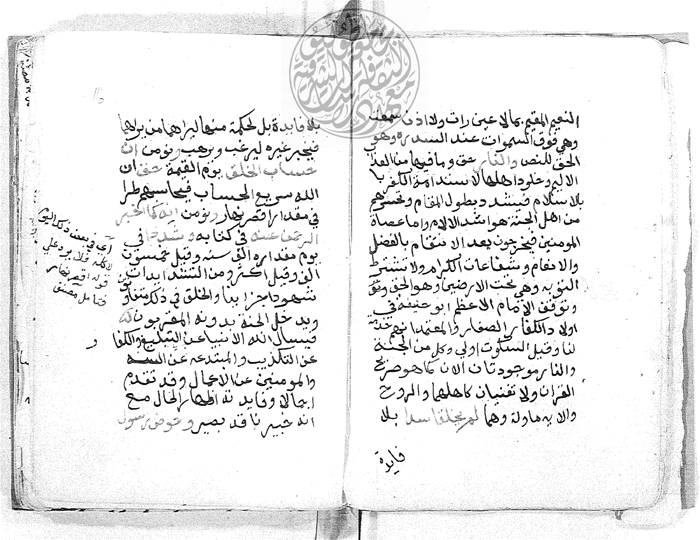 النعيم المقيم بما لا عين رات ولا اذن سمعت
وهي فوق السموات عند السدرة وهو
الحق للنص والنار حق وما فيها من العذاب
الاليم وخلود اهلها لاستدامة الكفر با
من اهل الجنة هو اشد الالام واما عصاة
المومنين فيخرجون بعد الانتقام بالفضل
والانعام وشفاعات الكرام ولا تشترط
التوبه وهي تحت الارضين وهو الحق وقد
وتوقف الامام الاعظم ابو حنيفة في
اولاد الكفار الصغار والمعتمد انهم خدمة
لنا وقيل السكوت اولى وكل من الجنة
والنار موجودتان الان كما هو صريح
القران ولا تفنيان كاهلهما والروح
والايه ماولة وهما لم يخلقا سدا بلا
فايدة
بلا فايدة بل لحكمة منها ليراهما من يراها
فيخبر غيره ليرغب ويرهب ونومن ان
حساب الخلق يوم القيمة حق ان
الله سريع الحساب فيحاسبهم طرا
في مقدار قصر نهار ونومن انه كما اخبر
الرحمن عنه في كتابه
يوم مقداره الف سنه وقيل خمسون
الف وقيل اكثر ومن
شهود
ويدخل الجنة بدونه المقربون
فيسال الله الانبيا عن التبليغ والكفا
عن التكذيب والمبتدعه عن السنه
والمومنين عن الاعمال وقد تقدم
اجمالا وفايدته اظهار الحال مع
انه خبير ناقد بصير وحوض رسول
قوله قصر نهار
فتامل مصنف